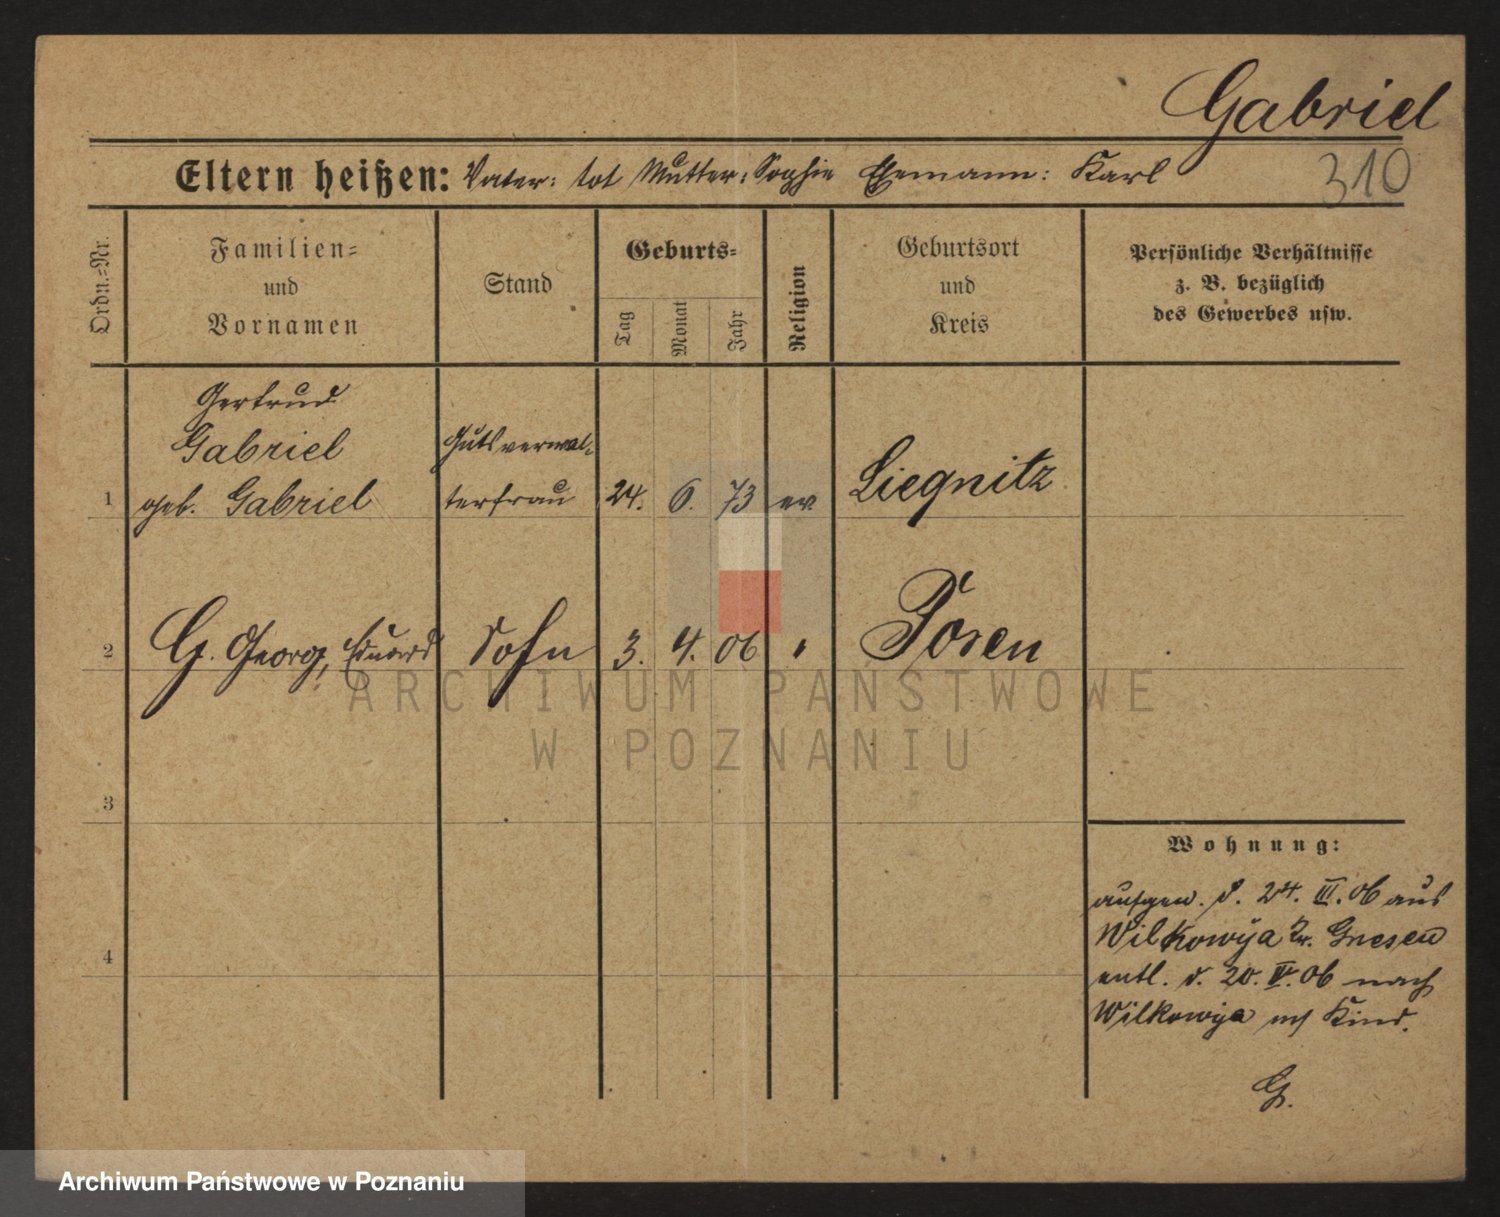 Gabriel
310
Eltern heißen: Vater: tot Mutter: Sophie Ehemann: Karl
Ordn.=Nr.
Familien=
und
Vornamen
Stand
Geburts=
Tag
Monat
Jahr
Religion
Geburtsort
und
Kreis
Persönliche Verhältnisse
z. B. bezüglich
des Gewerbes usw.
Gertrud
Gabriel
1 geb. Gabriel
Gutsverwal-
terfrau
24. 6. 73 ev
Liegnitz
2 G. Georg, Eduard Sohn 3. 4. 06 " Posen
3
4
Wohnung:
aufgen. d. 24. III. 06 aus
Wilkowyja Kr. Gnesen
entl. d. 20. IV. 06 nach
Wilkowyja m/ Kind.
G.
ARCHIWUM PAŃSTWOWE
W POZNANIU
Archiwum Państwowe w Poznaniu